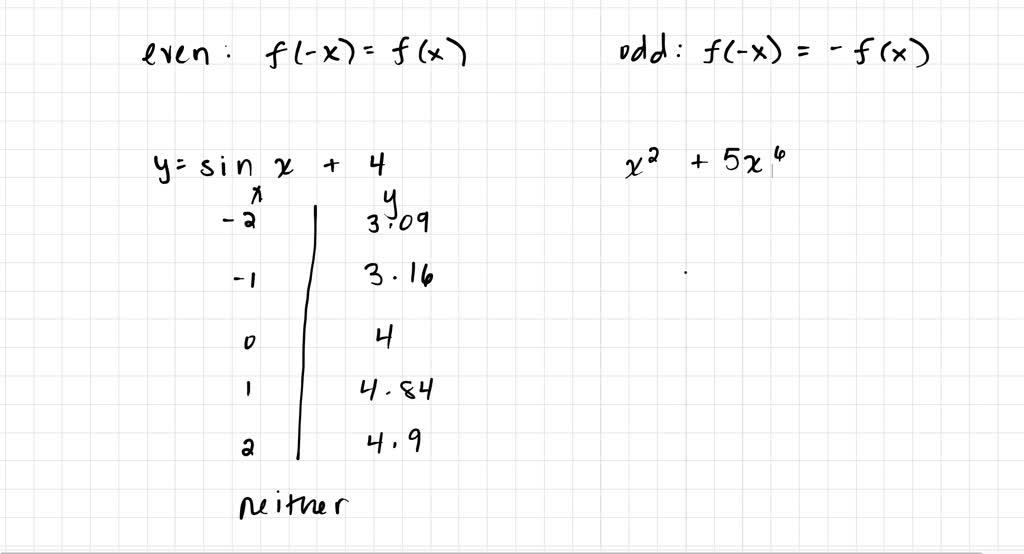 even: f(-x) = f(x)
odd: f(-x) = - f(x)
y = sin x + 4
x² + 5x⁶
x y
-2 3.09
-1 3.16
0 4
1 4.84
2 4.9
neither